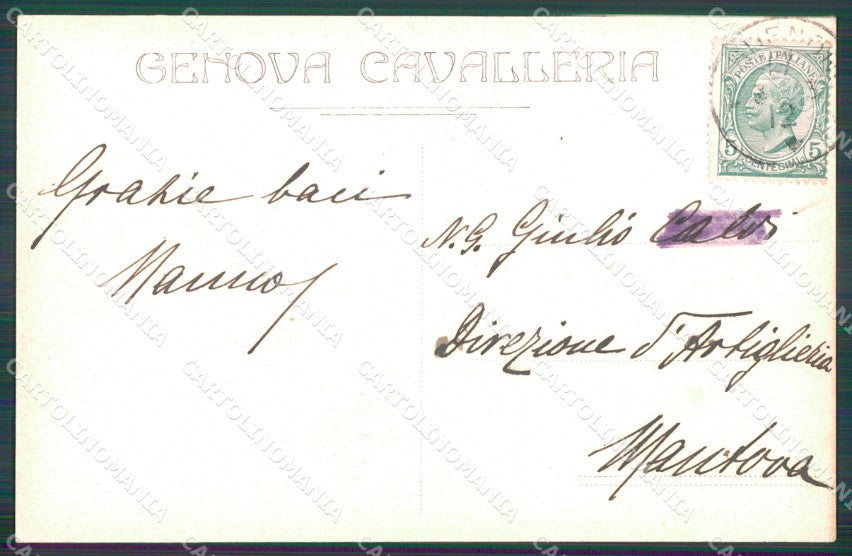 GENOVA CAVALLERIA
POSTE ITALIANE
5 CENTESIMI 5
12
Grazie baci
N. G. Giulio Calvi
Direzione d'Artiglieria
Mantova
CARTOLINOMANIA